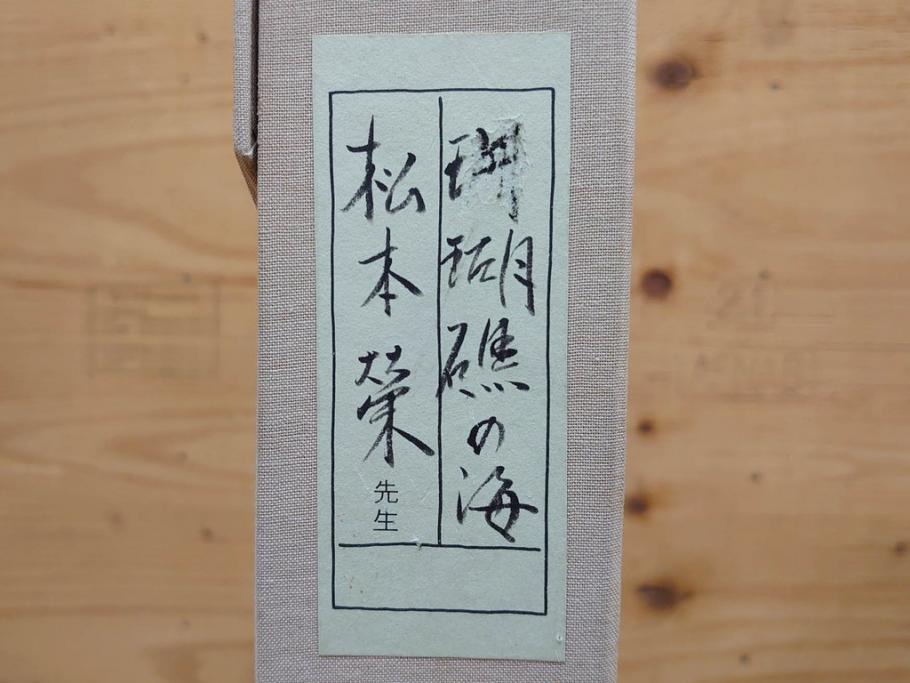 珊瑚礁の海
松本榮先生